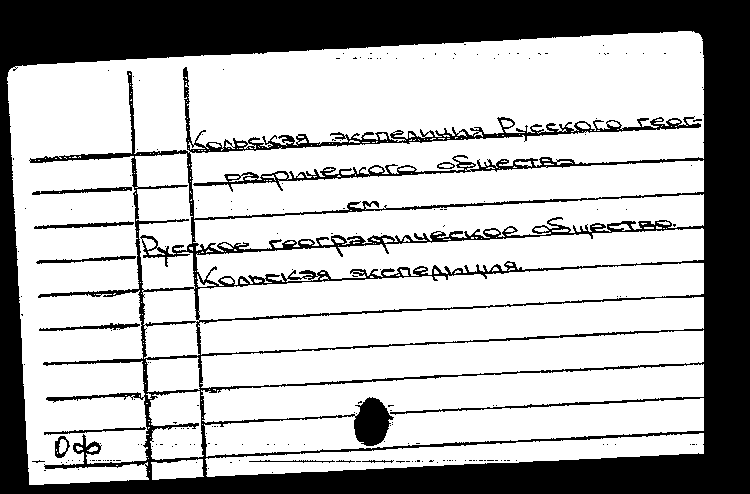 Кольская экспедиция Русского геог-
рафического общества.
см.
Русское географическое общество.
Кольская экспедиция.
Оф